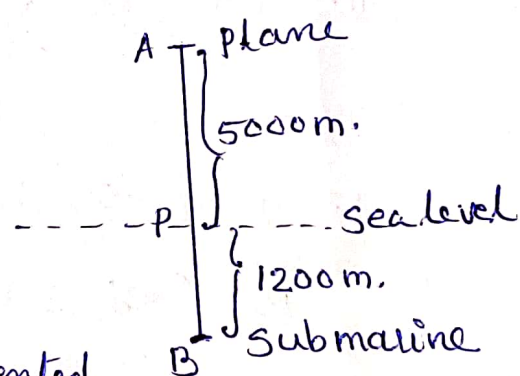 A plane
5000m.
P sea level
1200m.
B submarine